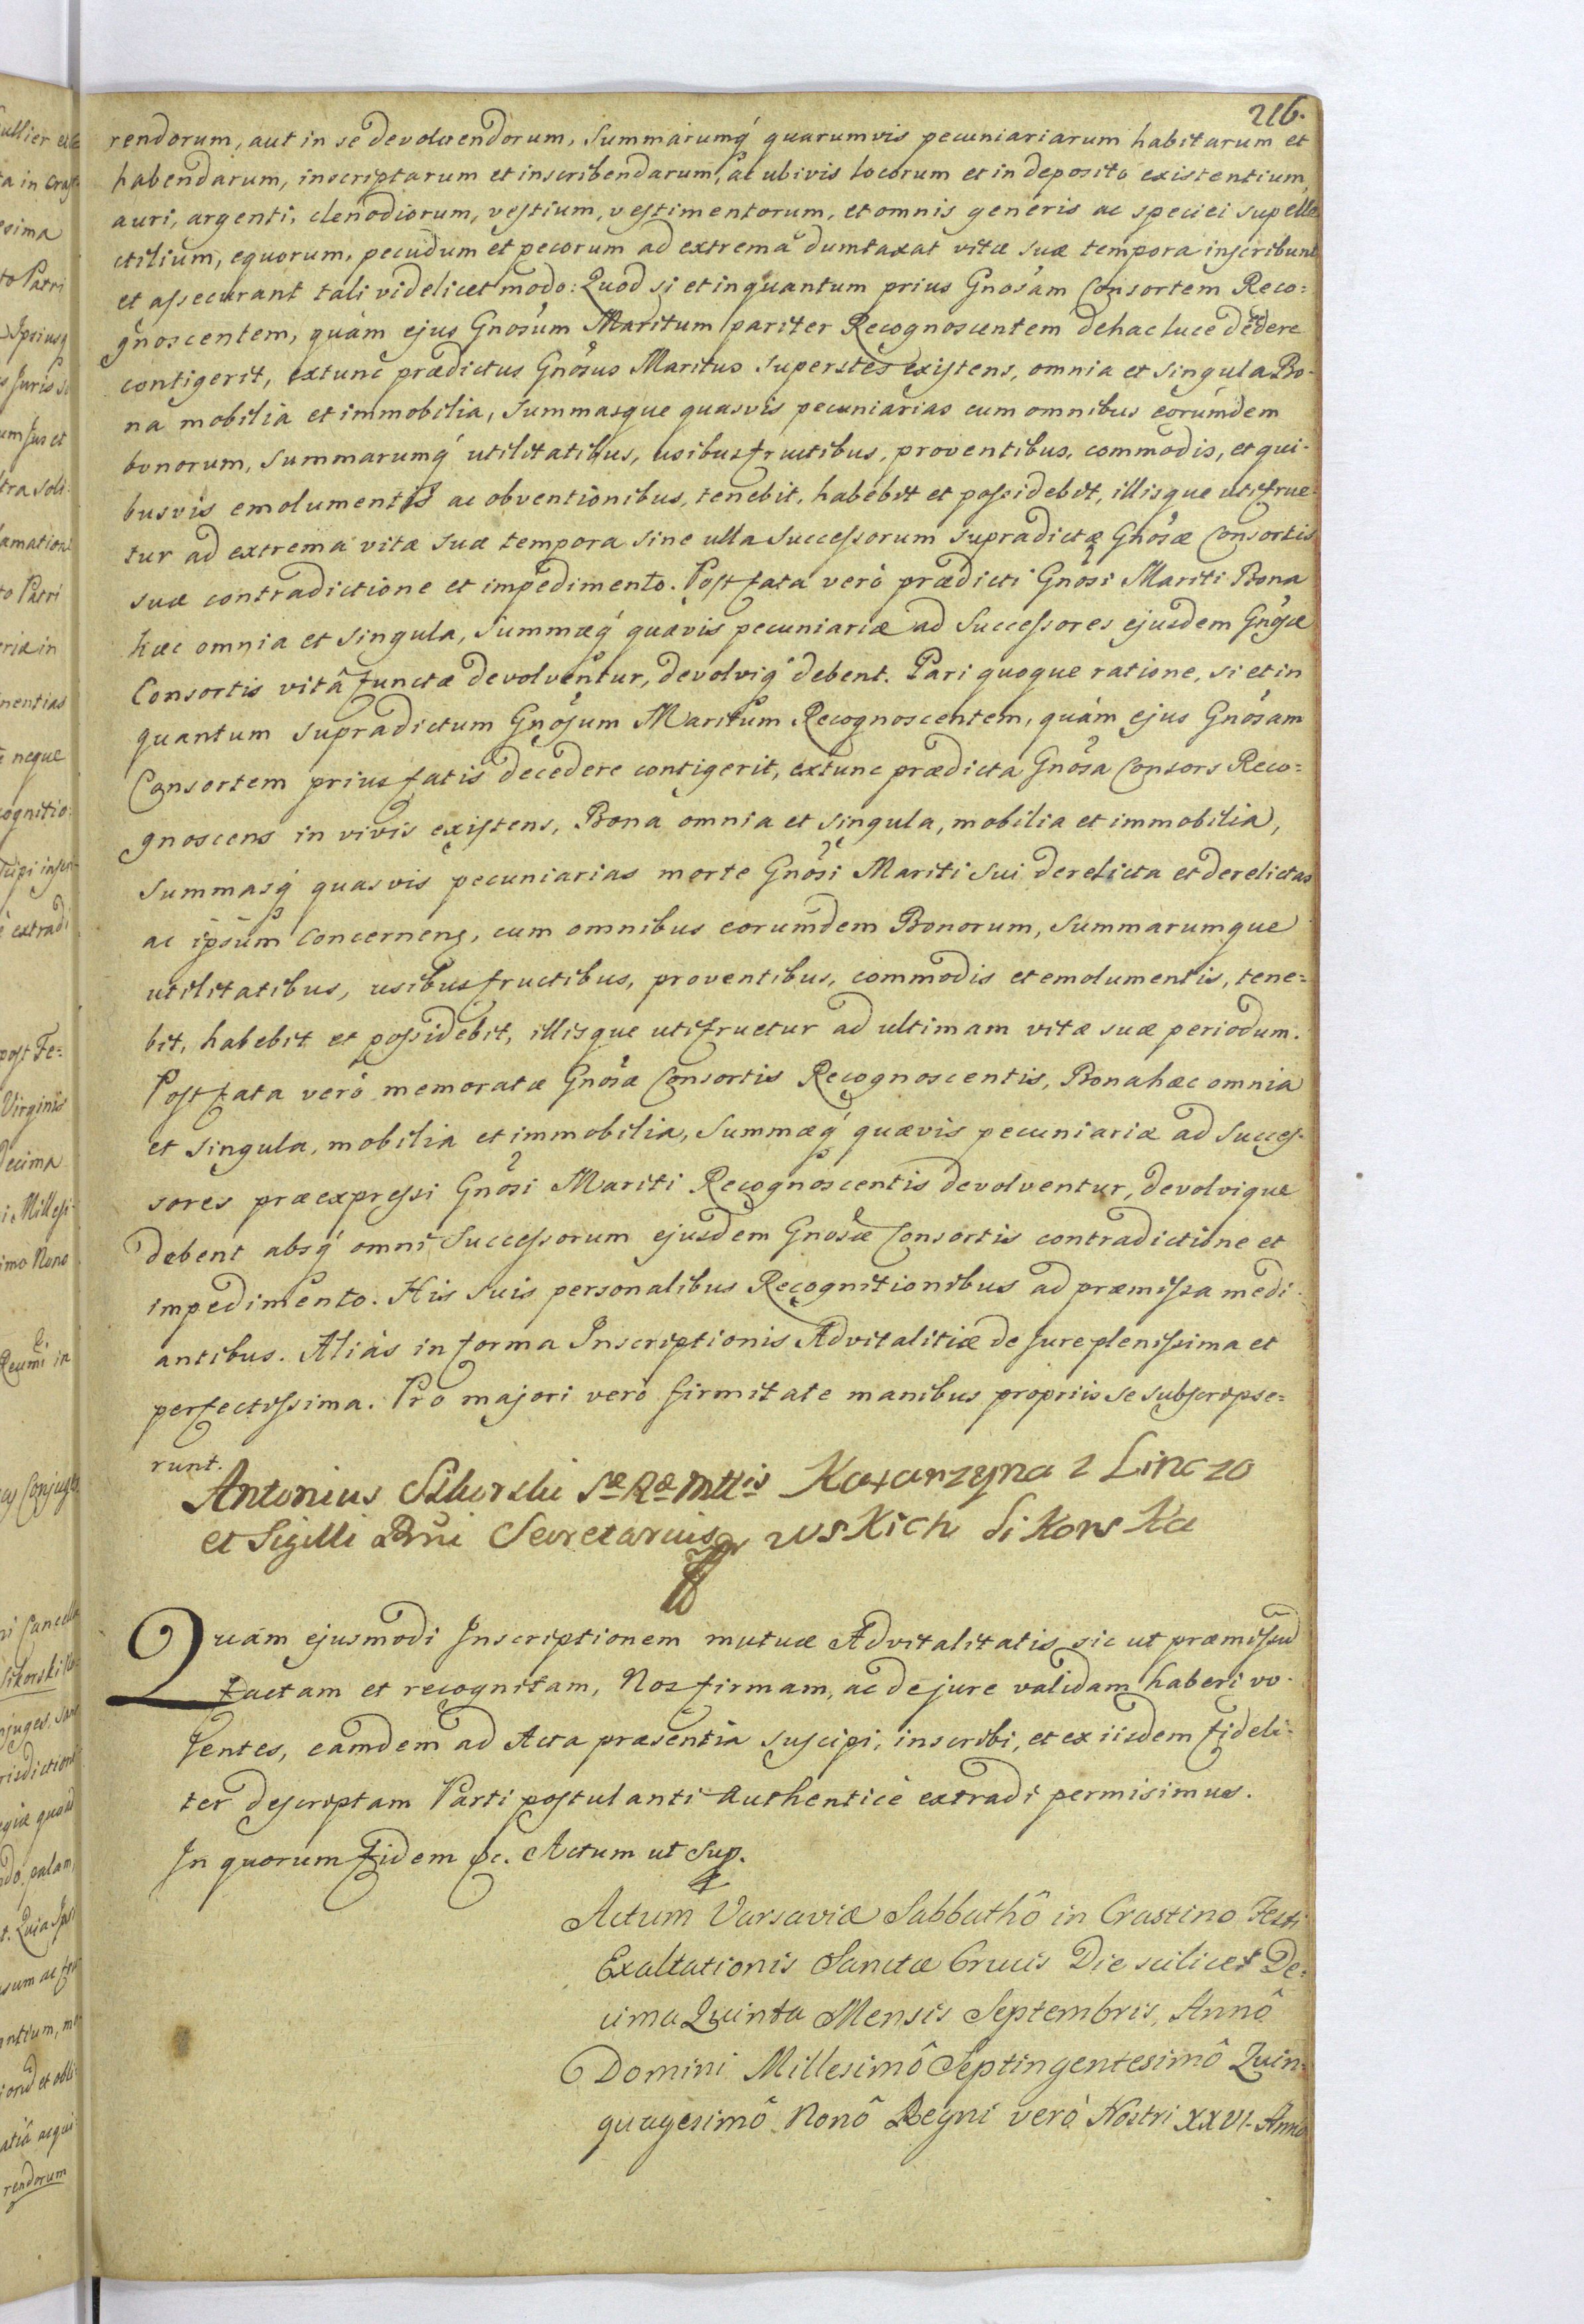 216.
rendorum, aut in se devolvendorum, Summarumq́ quarumvis pecuniariarum habitarum et
habendarum, inscriptarum et inscribendarum, ac ubivis locorum et in deposito existentium,
auri, argenti, clenodiorum, vestium, vestimentorum, et omnis generis ac speciei supelle
ctilium, equorum, pecudum et pecorum ad extrema dumtaxat vitæ suæ tempora inscribunt
et assecurant tali videlicet modo: Quod si et inquantum prius Gnosam Consortem Reco:
gnoscentem, quàm ejus Gnosum Maritum pariter Recognoscentem de hac luce dedere
contigerit, extunc prædictus Gnosus Maritus Superstes existens, omnia et singula Bo-
na mobilia et immobilia, Summasque quasvis pecuniarias cum omnibus eorumdem
bonorum, Summarumq́ utilitatibus, usibusfructibus, proventibus, commodis, et qui-
busvis emolumentis ac obventionibus, tenebit, habebit et possidebit, illisque utifrue-
tur ad extrema vitæ suæ tempora sine ulla Successorum supradictæ Gnosæ Consortis
suæ contradictione et impedimento. Post fata verò prædicti Gnosi Mariti Bona
hæc omnia et singula, Summæq́ quævis pecuniariæ ad Successores ejusdem Gnosæ
Consortis vitâ functæ devolventur, devolviq́ debent. Pari quoque ratione, si et in
quantum supradictum Gnosum Maritum Recognoscentem, quàm ejus Gnosam
Consortem prius fatis decedere contigerit, extunc prædicta Gnosa Consors Reco=
gnoscens in vivis existens, Bona omnia et singula, mobilia et immobilia,
Summasq́ quasvis pecuniarias morte Gnosi Mariti sui derelicta et derelictas
ac ipsum concernens, cum omnibus eorumdem Bonorum, Summarumque
utilitatibus, usibusfructibus, proventibus, commodis et emolumentis, tene=
bit, habebit et possidebit, illisque utifruetur ad ultimam vitæ suæ periodum.
Post fata verò memoratæ Gnosæ Consortis Recognoscentis, Bona hæc omnia
et singula, mobilia et immobilia, Summæq́ quævis pecuniariæ ad Succes-
sores præexpressi Gnosi Mariti Recognoscentis devolventur, devolvique
debent absq́ omni Successorum ejusdem Gnosæ Consortis contradictione et
impedimento. His suis personalibus Recognitionibus ad præmissa medi-
antibus. Aliàs in forma Inscriptionis Advitalitiæ de jure plenissima et
perfectissima. Pro majori verò firmitate manibus propriis se subscripse=
runt.
Antonius Sikorski Sæ Ræ Mttis Katarzyna z Linczo
et Sigilli Secretarius wskich Sikorska
Quam ejusmodi Inscriptionem mutuæ Advitalitatis sic ut præmissum
factam et recognitam, Nos firmam, ac de jure validam haberi vo-
lentes, eamdem ad Acta præsentia suscipi, inscribi, et ex iisdem fideli-
ter descriptam Parti postulanti authenticè extradi permisimus.
In quorum fidem &c. Actum ut sup.
Actum Varsaviæ Sabbathô in Crastino Festi
Exaltationis Sanctæ Crucis Die scilicet De=
cima Quinta Mensis Septembris, Annô
Domini Millesimô Septingentesimô Quin=
quagesimô Nonô Regni verò Nostri XXVI. Anno